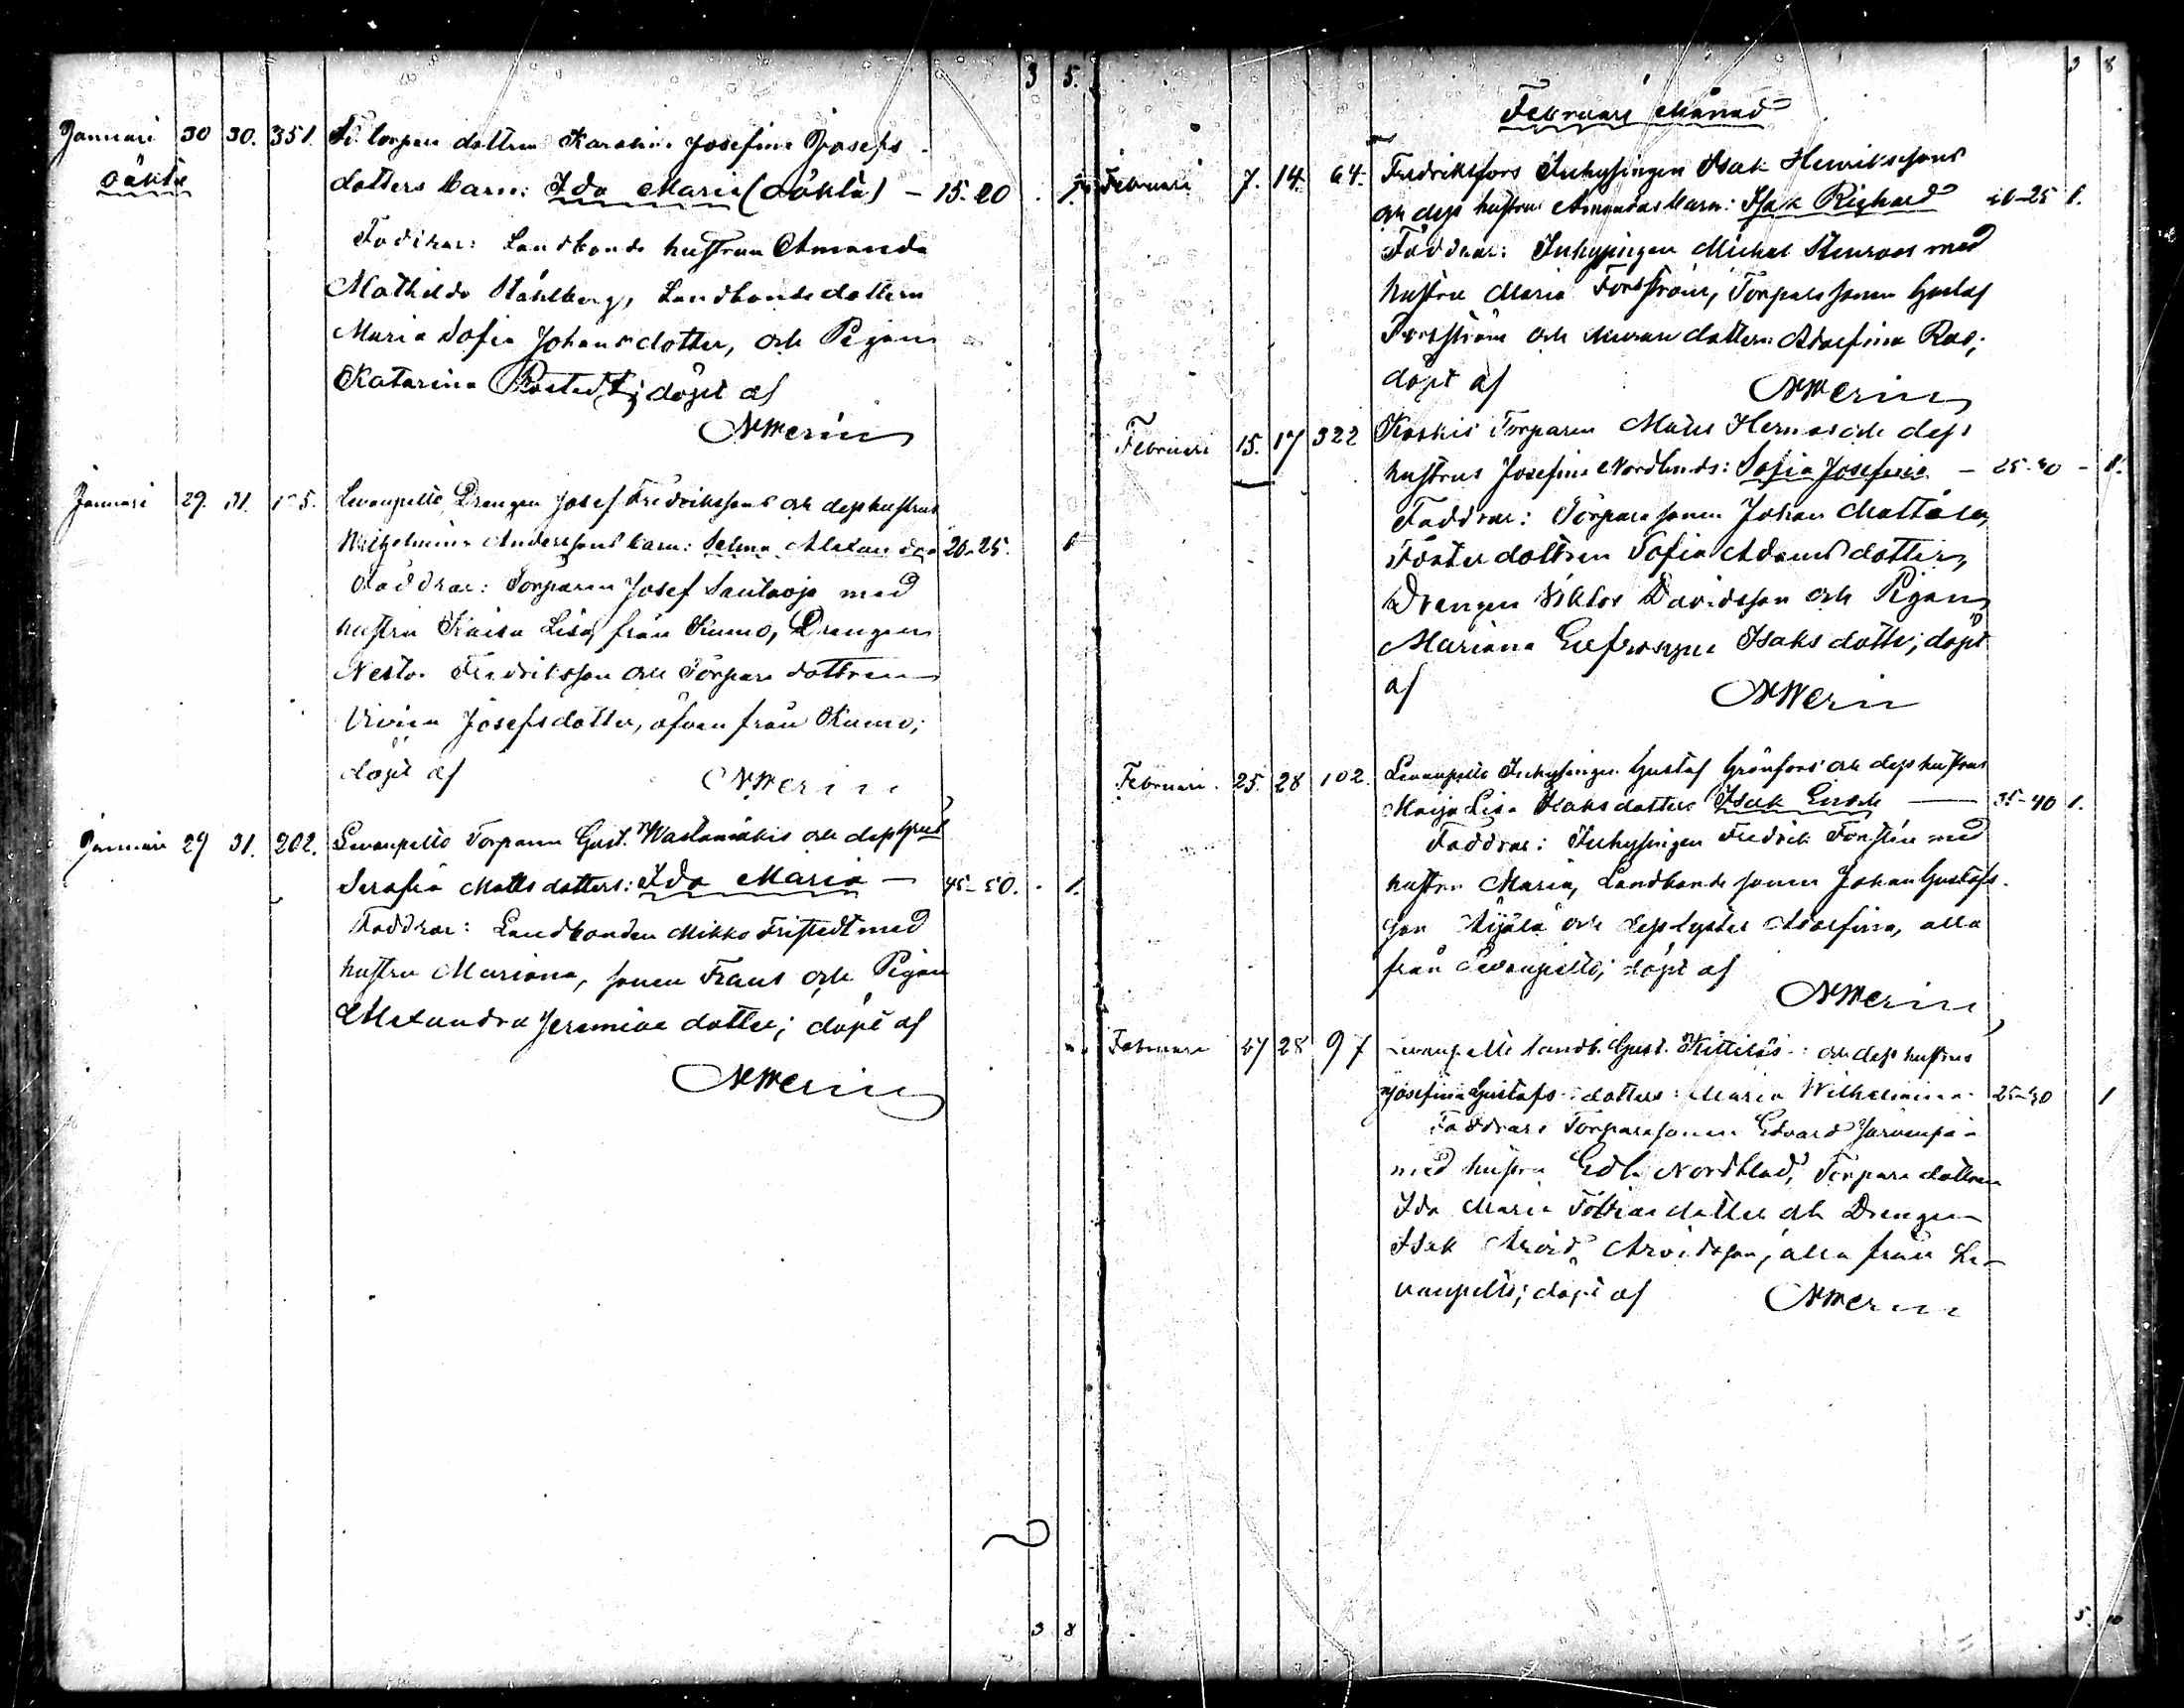 3 5.
Januari 30 30. 351. torpare dottren Karolina Josefina Josefs-
oäkta
dotters barn: Ida Maria (oäkta) - 15-20 1.
Faddrar: Landbonde hustrun Amanda
Mathilda Ståhlberg, Landbonde dottren
Maria Sofia Johansdotter, och Pigan
Katarina Rostedt; döpt af
NMerin
Januari 29. 31. Levanpelto Drengen Josef Fredrikssons och dess hustrus
Wilhelmina Anderssons barn: Selma Alexandra 20-25. 1
Faddrar: Torparen Josef Santaoja med
hustru Kaisa Lisa från Kumo, Drengen
Nestor Fredriksson och Torpare dottren
Josefsdotter, äfven från Kumo;
döpt af NMerin
Januari 29 31. 202. Levanpelto Torparen Gust. Wastamäkis och dess hust
Serafia Matts dotters: Ida Maria - 45-50. 1.
Faddrar: Landbonden Mikko Fristedt med
hustru Mariana, sonen Frans och Pigan
Alexandra Jeremiae dotter; döpt af
NMerin
3 8
3 8
Februari Månad
Februari 7. 14. 64. Fredriksfors Inhysingen Isak Henrikssons
och dess hustrus Amandas barn: Isak Righard 20-25 1.
Faddrar: Inhysingen Michel Stenroos med
hustru Maria Forsström, Torpare sonen Gustaf
Forsström och dottren Adolfina Ros;
döpt af NMerin
Februari 15. 17 322 Koskis Torparen Matts Hernas och dess
hustrus Josefina Nordlunds: Sofia Josefina - 25-30 - 1.
Faddrar: Torpare sonen Johan Mattala,
Fosterdottren Sofia Adamsdotter,
Drengen Viktor Davidsson och Pigan
Mariana Eufrosyne Isaksdotter; döpt
af NMerin
Februari. 25. 28 102. Levanpelto Inhysingen Gustaf Grönfors och dess hustrus
Maija Lisa Isaksdotters Isak 35-40 1.
Faddrar: Inhysingen Fredrik Forsten med
hustru Maria, Landbonde sonen Johan Gustafs-
son Äijälä och dess syster Adolfina, alla
från Levanpelto; döpt af
NMerin
Februari 27 28 97 Levanpelto landb. Gust. Kittiläs och dess hustrus
Josefina Gustafs dotters: Maria Wilhelmina 25-30 1
Faddrar: Torparesonen Edvard Järvenpää
med hustru Edla Nordblad, Torpare dottren
Ida Maria Tobiae dotter och Drengen
Isak Arvid Arvidsson, alla från Le-
vanpelto; döpt af NMerin
5. 10